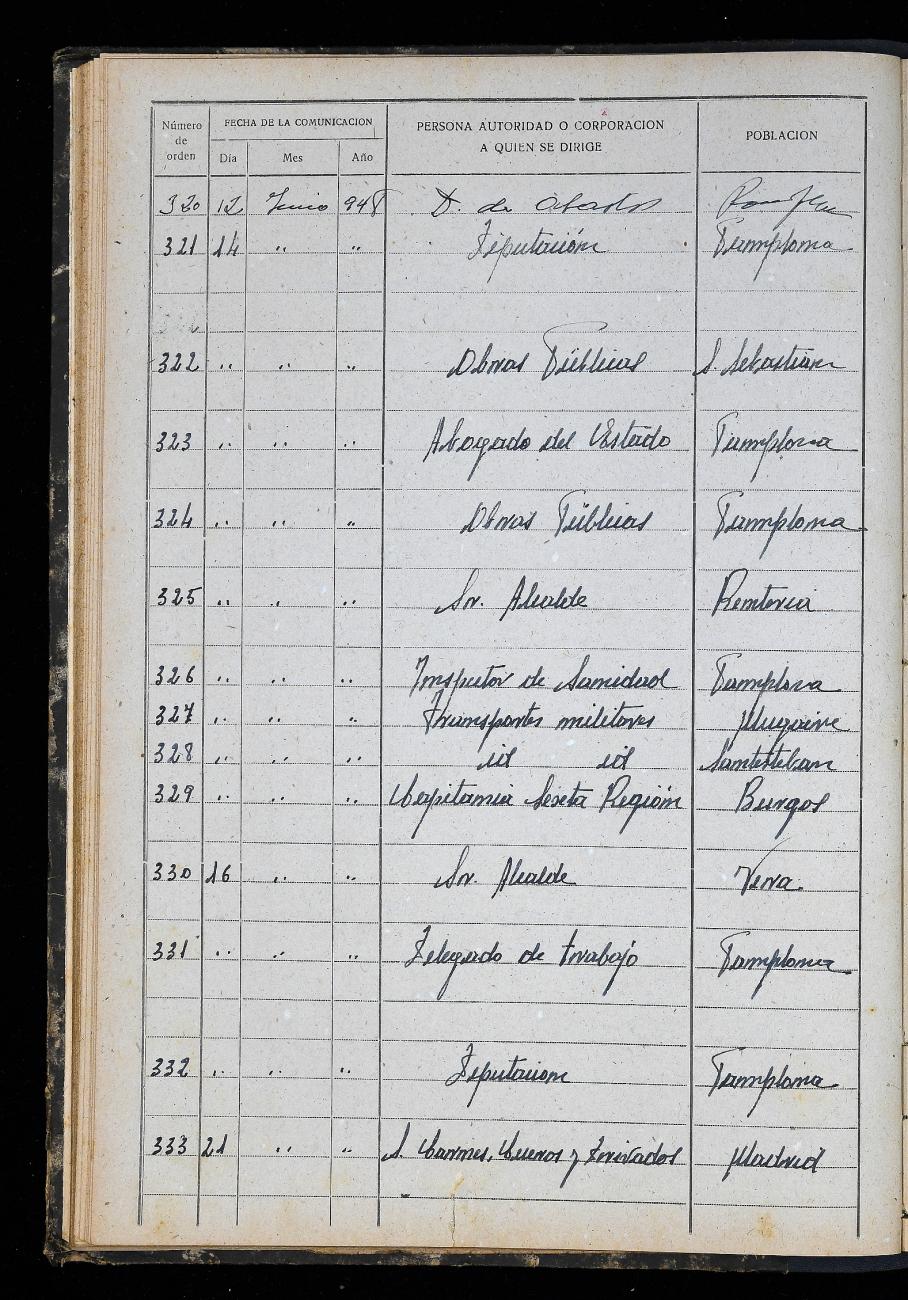 Número de orden
FECHA DE LA COMUNICACION
Día Mes Año
PERSONA AUTORIDAD O CORPORACION
A QUIEN SE DIRIGE
POBLACION
320 12 Junio 948 D. de Abastos
321 14 " " Diputación Pamplona
322 " " " Obras Públicas S. Sebastián
323 " " " Abogado del Estado Pamplona
324 " " " Obras Públicas Pamplona
325 " " " Sr. Alcalde Renteria
326 " " " Inspector de Sanidad Pamplona
327 " " " Transportes militares Mugaire
328 " " " id id Santesteban
329 " " " Capitania Sexta Región Burgos
330 16 " " Sr. Alcalde Vera
331 " " " Delegado de trabajo Pamplona
332 " " " Diputacion Pamplona
333 21 " " S. Carnes, Cueros y Derivados Madrid